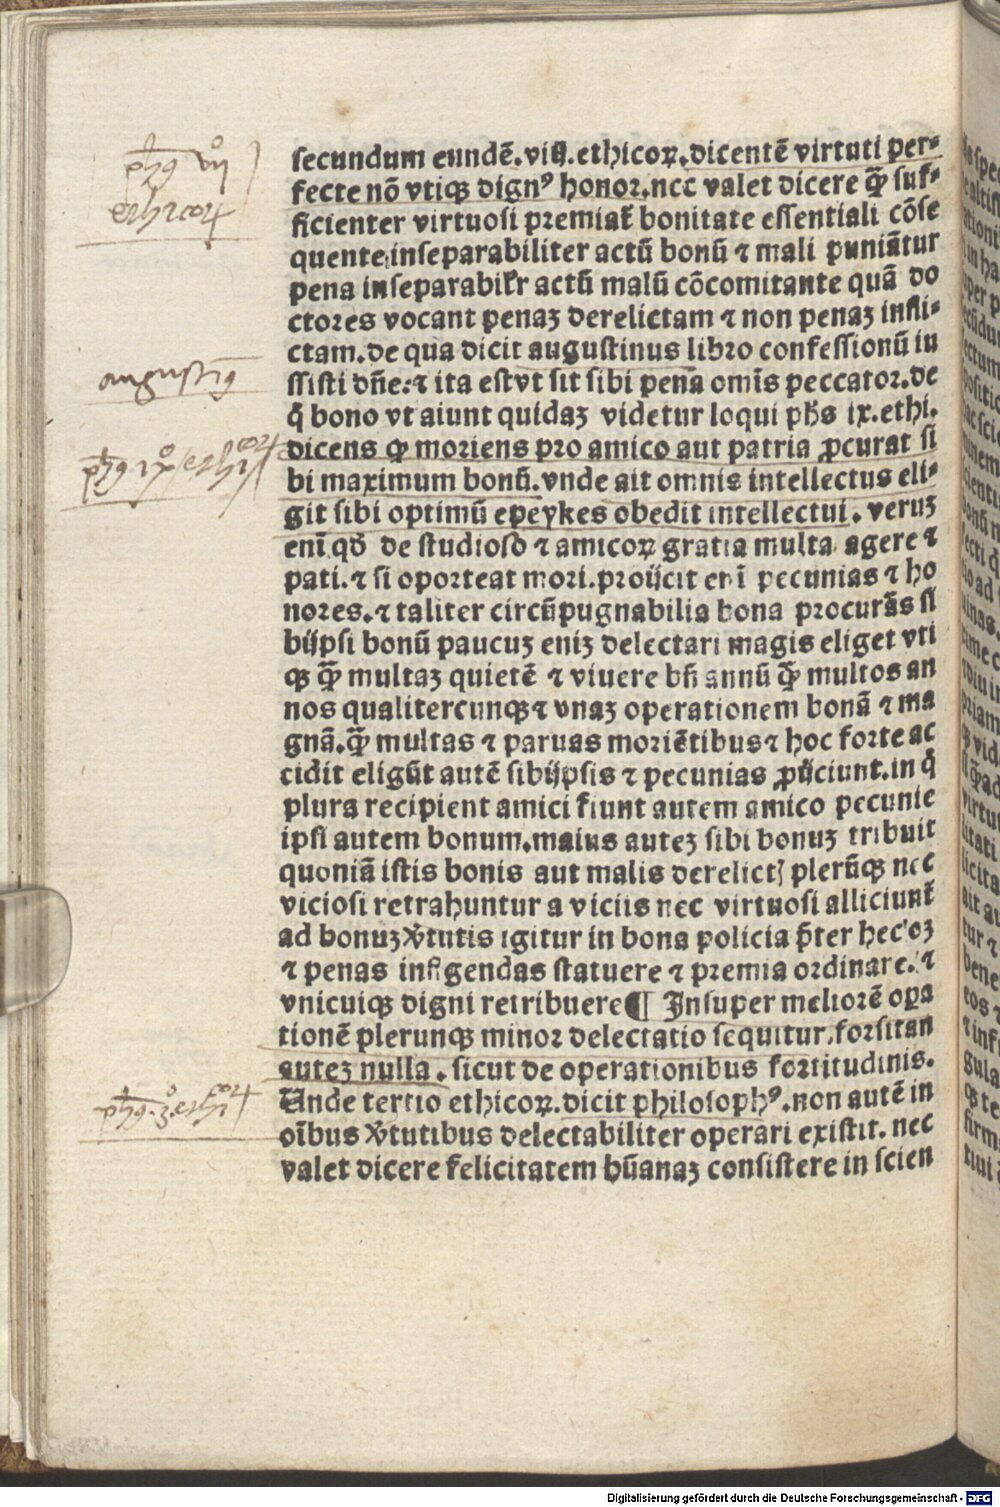 secundum eundē.viij.ethicoꝝ.dicentē virtuti per⸗
fecte nō vtiqꝫ dignꝰ honor.nec valet dicere ꝙ̄ suf⸗
ficienter virtuosi premiaƭ bonitate essentiali cōse
quente inseparabiliter actū bonū ⁊ mali puniātur
pena inseparabilr actū malū cōcomitante quā do
ctores vocant penaꝫ derelictam ⁊ non penaꝫ infli⸗
ctam.de qua dicit augustinus libro confessionū iu
ssisti dñe:⁊ ita est vt sit sibi pena omīs peccator.de
q̊ bono vt aiunt quidaꝫ videtur loqui pħs ix.ethi.
dicens ꝙ moriens pro amico aut patria ꝓcurat si
bi maximum bonū.vnde ait omnis intellectus eli⸗
git sibi optimū epeykes obedit intellectui. veruꝫ
enī qđ de studioso ⁊ amicoꝝ gratia multa agere ⁊
pati.⁊ si oporteat mori.proijcit enī pecunias ⁊ ho
nores.⁊ taliter circūpugnabilia bona procurās si
bijpsi bonū paucuꝫ eniꝫ delectari magis eliget vti
qꝫ ꝙ̄ multaꝫ quietē ⁊ viuere bñ annū ꝙ̄ multos an
nos qualitercunqꝫ ⁊ vnaꝫ operationem bonā ⁊ ma
gnā.ꝙ̄ multas ⁊ paruas moriētibus ⁊ hoc forte ac
cidit eligūt autē sibijpsis ⁊ pecunias ꝓijciunt.in q̊
plura recipient amici fiunt autem amico pecunie
ipsi autem bonum.maius auteꝫ sibi bonuꝫ tribuit
quoniā istis bonis aut malis derelictꝭ plerūqꝫ nec
viciosi retrahuntur a viciis nec virtuosi alliciunƭ
ad bonuꝫ v̓tutis igitur in bona policia p̄ter hec oꝫ
⁊ penas infigendas statuere ⁊ premia ordinare.⁊
vnicuiqꝫ digni retribuere ¶ Insuper meliorē oꝑa
tionē plerunqꝫ minor delectatio sequitur.forsitan
auteꝫ nulla. sicut de operationibus fortitudinis.
Unde tertio ethicoꝝ.dicit philosophꝰ.non autē in
oībus v̓tutibus delectabiliter operari existit. nec
valet dicere felicitatem hūanaꝫ consistere in scien
Digitalisierung gefördert durch die Deutsche Forschungsgemeinschaft - DFG